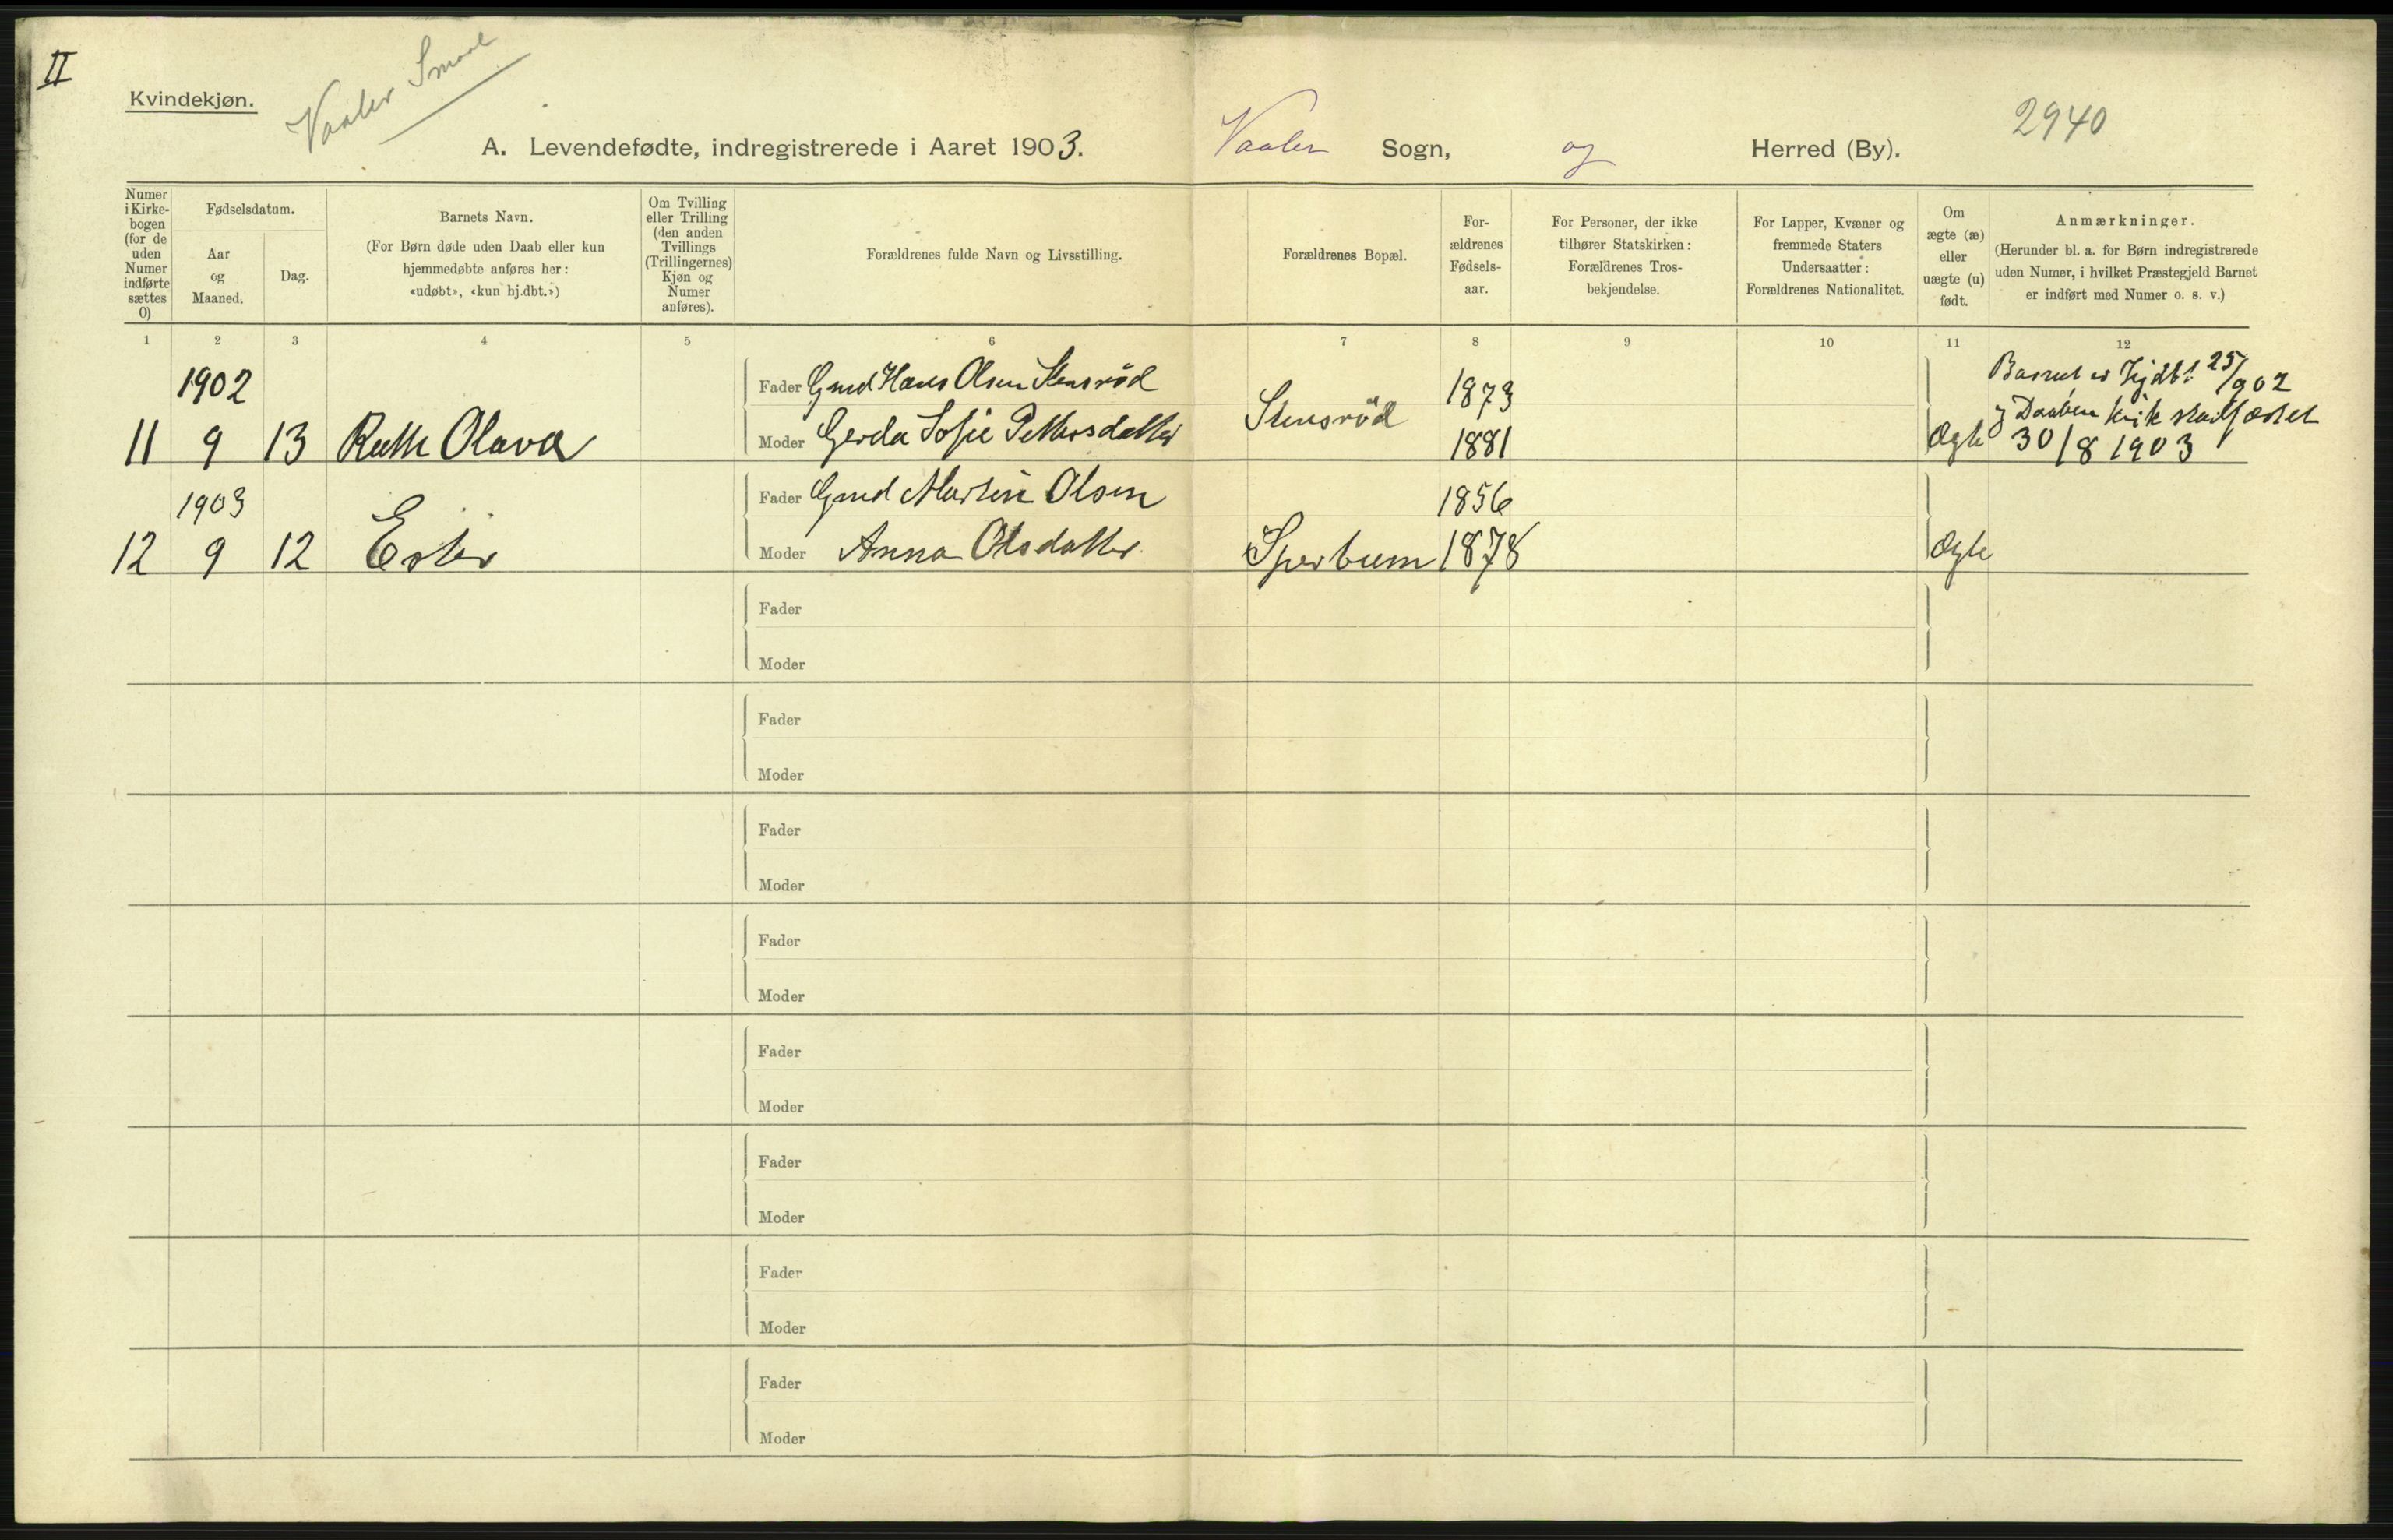 II
Kvindekjøn.
Vaaler Smaal
2940
A. Levendefødte, indregistrerede i Aaret 1903. Vaaler Sogn, og Herred (By).
Numer i Kirke- bogen (for de uden Numer indførte sættes 0)
Fødselsdatum.
Aar og Maaned.
Dag.
Barnets Navn.
(For Børn døde uden Daab eller kun hjemmedøbte anføres her: «udøbt», «kun hj.dbt.»)
Om Tvilling eller Trilling (den anden Tvillings (Trillingernes) Kjøn og Numer anføres).
Forældrenes fulde Navn og Livsstilling.
Forældrenes Bopæl.
For- ældrenes Fødsels- aar.
For Personer, der ikke tilhører Statskirken: Forældrenes Tros- bekjendelse.
For Lapper, Kvæner og fremmede Staters Undersaatter: Forældrenes Nationalitet.
Om ægte (æ) eller uægte (u) født.
Anmærkninger.
(Herunder bl. a. for Børn indregistrerede uden Numer, i hvilket Præstegjeld Barnet er indført med Numer o. s. v.)
1 2 3 4 5 6 7 8 9 10 11 12
1902 Fader Gmd Hans Olsen Stensröd 1873 Barnet er Hjdbt 25/ 902
11 9 13 Ruth Olava Moder Gerda Sofie Pettersdatter Stensröd 1881 Ægte Daaben 30/8 1903
1903 Fader Gmd Martin Olsen 1856
12 9 12 Ester Moder Anna Olsdatter Sperbum 1878 Ægte
Fader
Moder
Fader
Moder
Fader
Moder
Fader
Moder
Fader
Moder
Fader
Moder
Fader
Moder
Fader
Moder